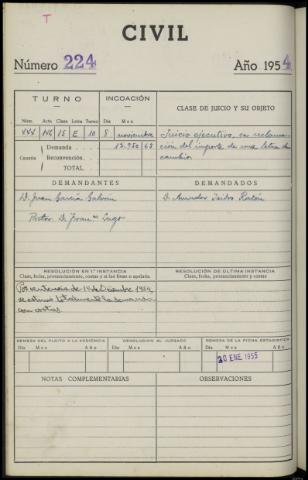 T
CIVIL
Número 224 Año 1954
TURNO INCOACIÓN CLASE DE JUICIO Y SU OBJETO
Núm. Acta Clase Letra Turno Día Mes
15 E 10 8 noviembre
Juicio ejecutivo, en reclama-
ción del importe de una letra de
cambio
Cuantía
Demanda 13.950 65
Reconvención
TOTAL
DEMANDANTES DEMANDADOS
D. Juan García
Procter. D. Fran.co Lago
D. Amador
RESOLUCIÓN EN 1.ª INSTANCIA
Clase, fecha, pronunciamiento, costas y si fué firme o apelada.
RESOLUCIÓN DE ÚLTIMA INSTANCIA
Clase, fecha, pronunciamiento y costas
Por sentencia de 14 Diciembre 1954
se estimó totalmente la demanda
con costas
REMESA DEL PLEITO A LA SUPERIOR DEVOLUCIÓN AL JUZGADO REMESA DE LA FICHA ESTADÍSTICA
Día Mes Año Día Mes Año Día Mes Año
20 ENE 1955
NOTAS COMPLEMENTARIAS OBSERVACIONES